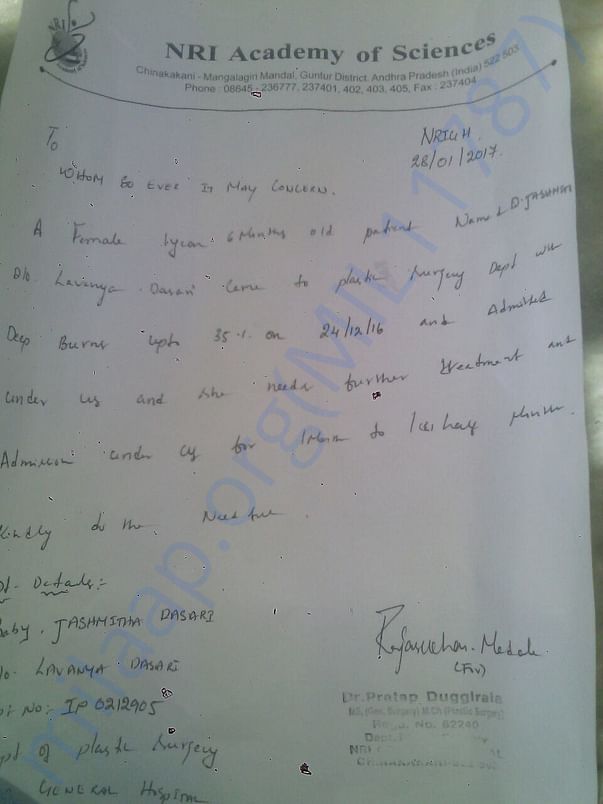 NRI
NRI Academy of Sciences
Chinakakani - Mangalagiri Mandal, Guntur District. Andhra Pradesh (India) 522 503
Phone : 08645 - 236777, 237401, 402, 403, 405, Fax : 237404
NRIGH.
28/01/2017.
To
WHOM SO EVER IT MAY CONCERN.
A Female 1year 6 Months old patient Named D. JASHMITHA
D/o. Lavanya Dasari Came to plastic Surgery Dept with
Deep Burns upto 35% on 24/12/16 and Admitted
under us and she needs further treatment and
Admission under us for 1 Month to
Kindly do the Needful.
pt. Details:-
Baby. JASHMITHA DASARI
D/o. LAVANYA DASARI
IP No: IP 0212905
Dept of plastic Surgery
GENERAL Hospital
(For)
Dr.Pratap Duggirala
MS, (Gen. Surgery) M.Ch (Plastic Surgery)
Regd. No. 62240
Dept.
NRI
milaap.org(MIL11787)